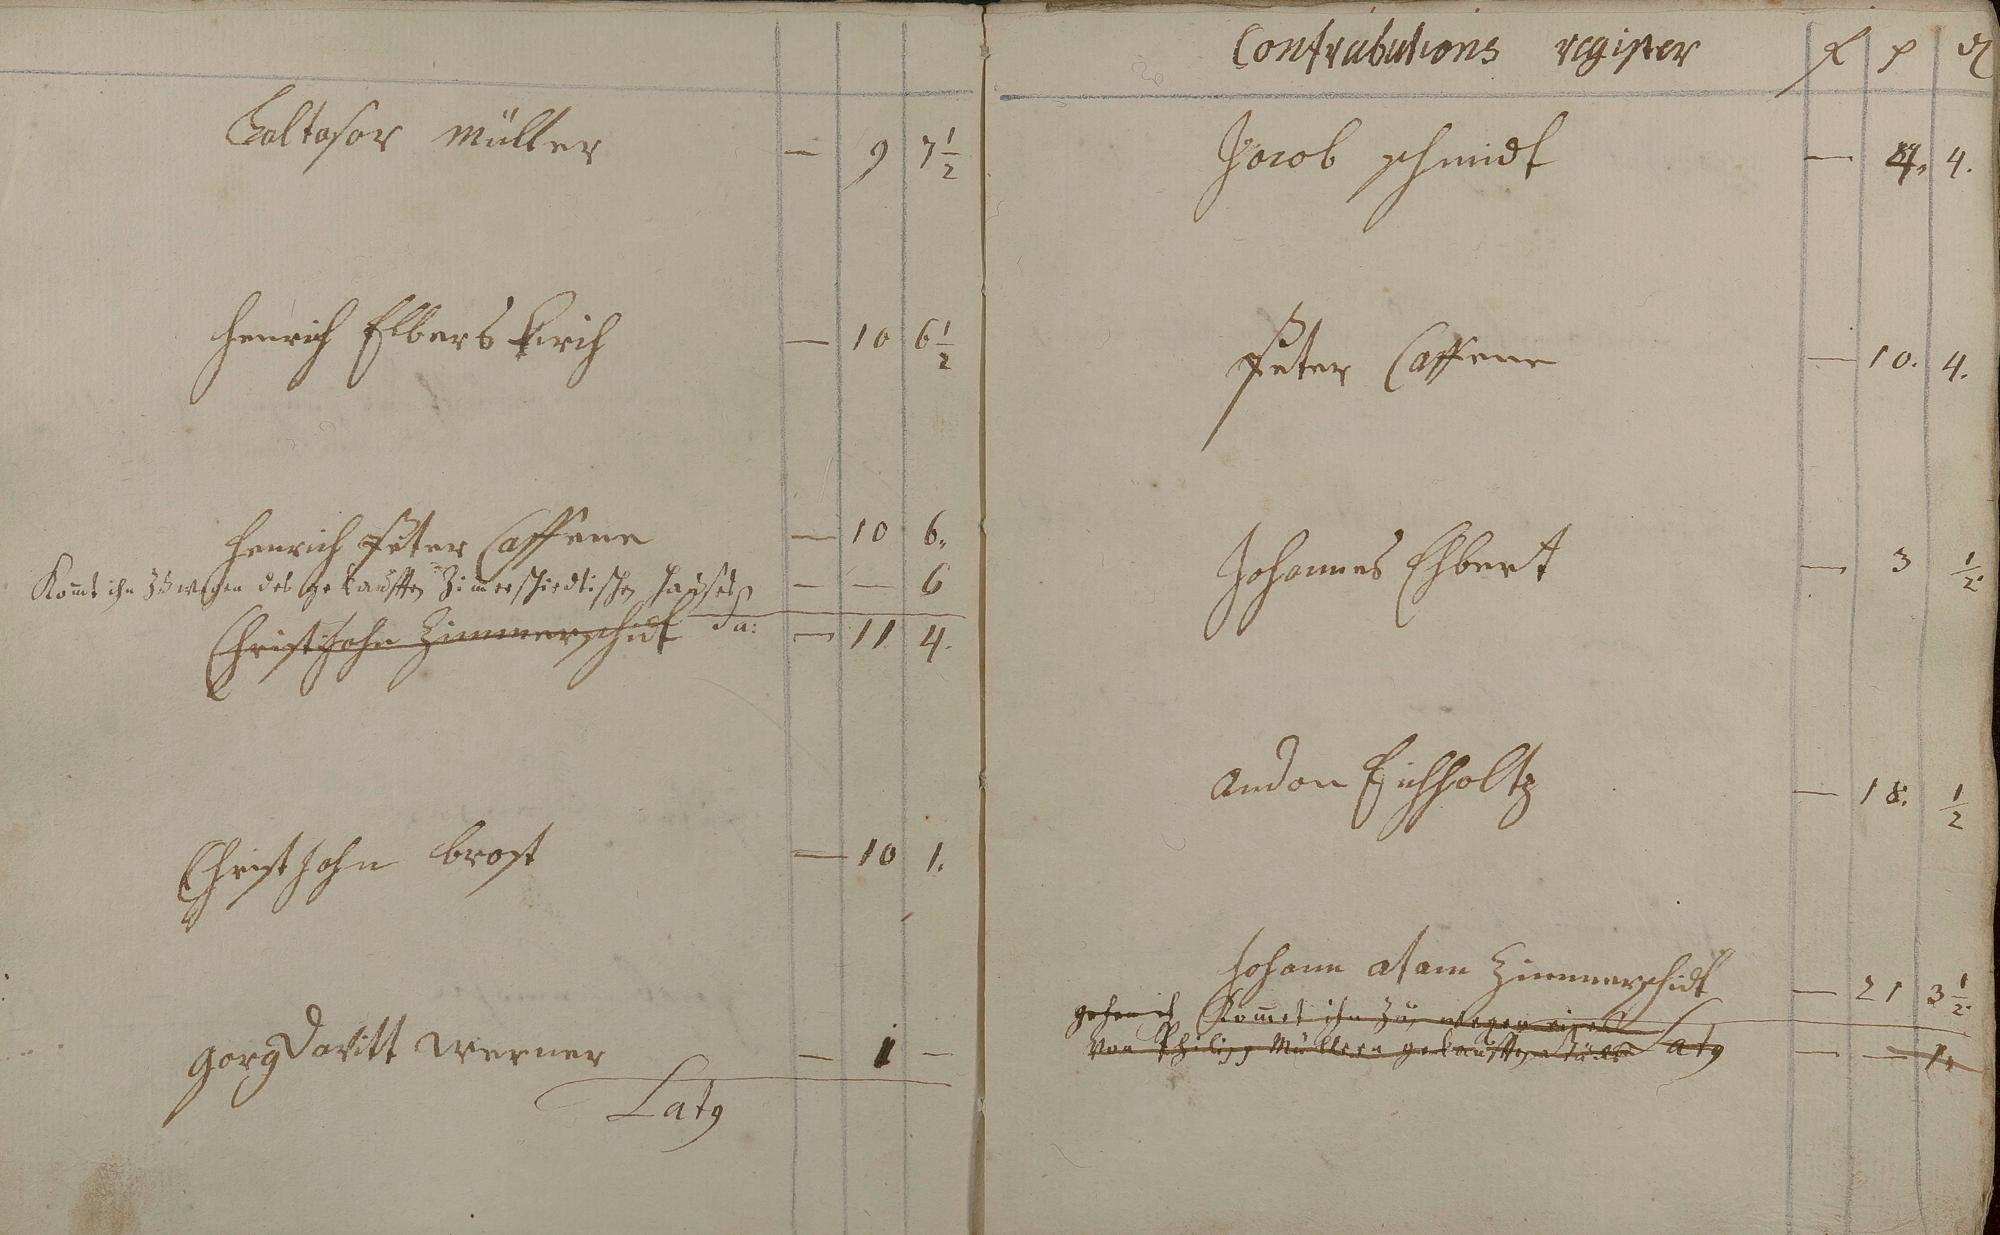 Baltasar Müller — 9 7 1/2
Henrich Elbers kirch — 10 6 1/2
Henrich Peter Caffene — 10 6.
Komt ihn zu wegen des gekaufften Zimerschiedtischen Hauses — — 6
Christjohn Zimmerschidt da: — 11 4.
Christ John brost — 10 1.
gorg Davitt Werner — 1 —
Latg
Contributions register
R P
Jacob schmidt — 4.
Peter Caffene — 10. 4.
Johannes Ehbert — 3 1/2.
Andon Eichholtz — 18. 1/2
Johann atam Zimmerschidt — 21 3 1/2.
Kommet ihn zu, wegen
von Philipp Müllern gekaufften Latg — — 1.